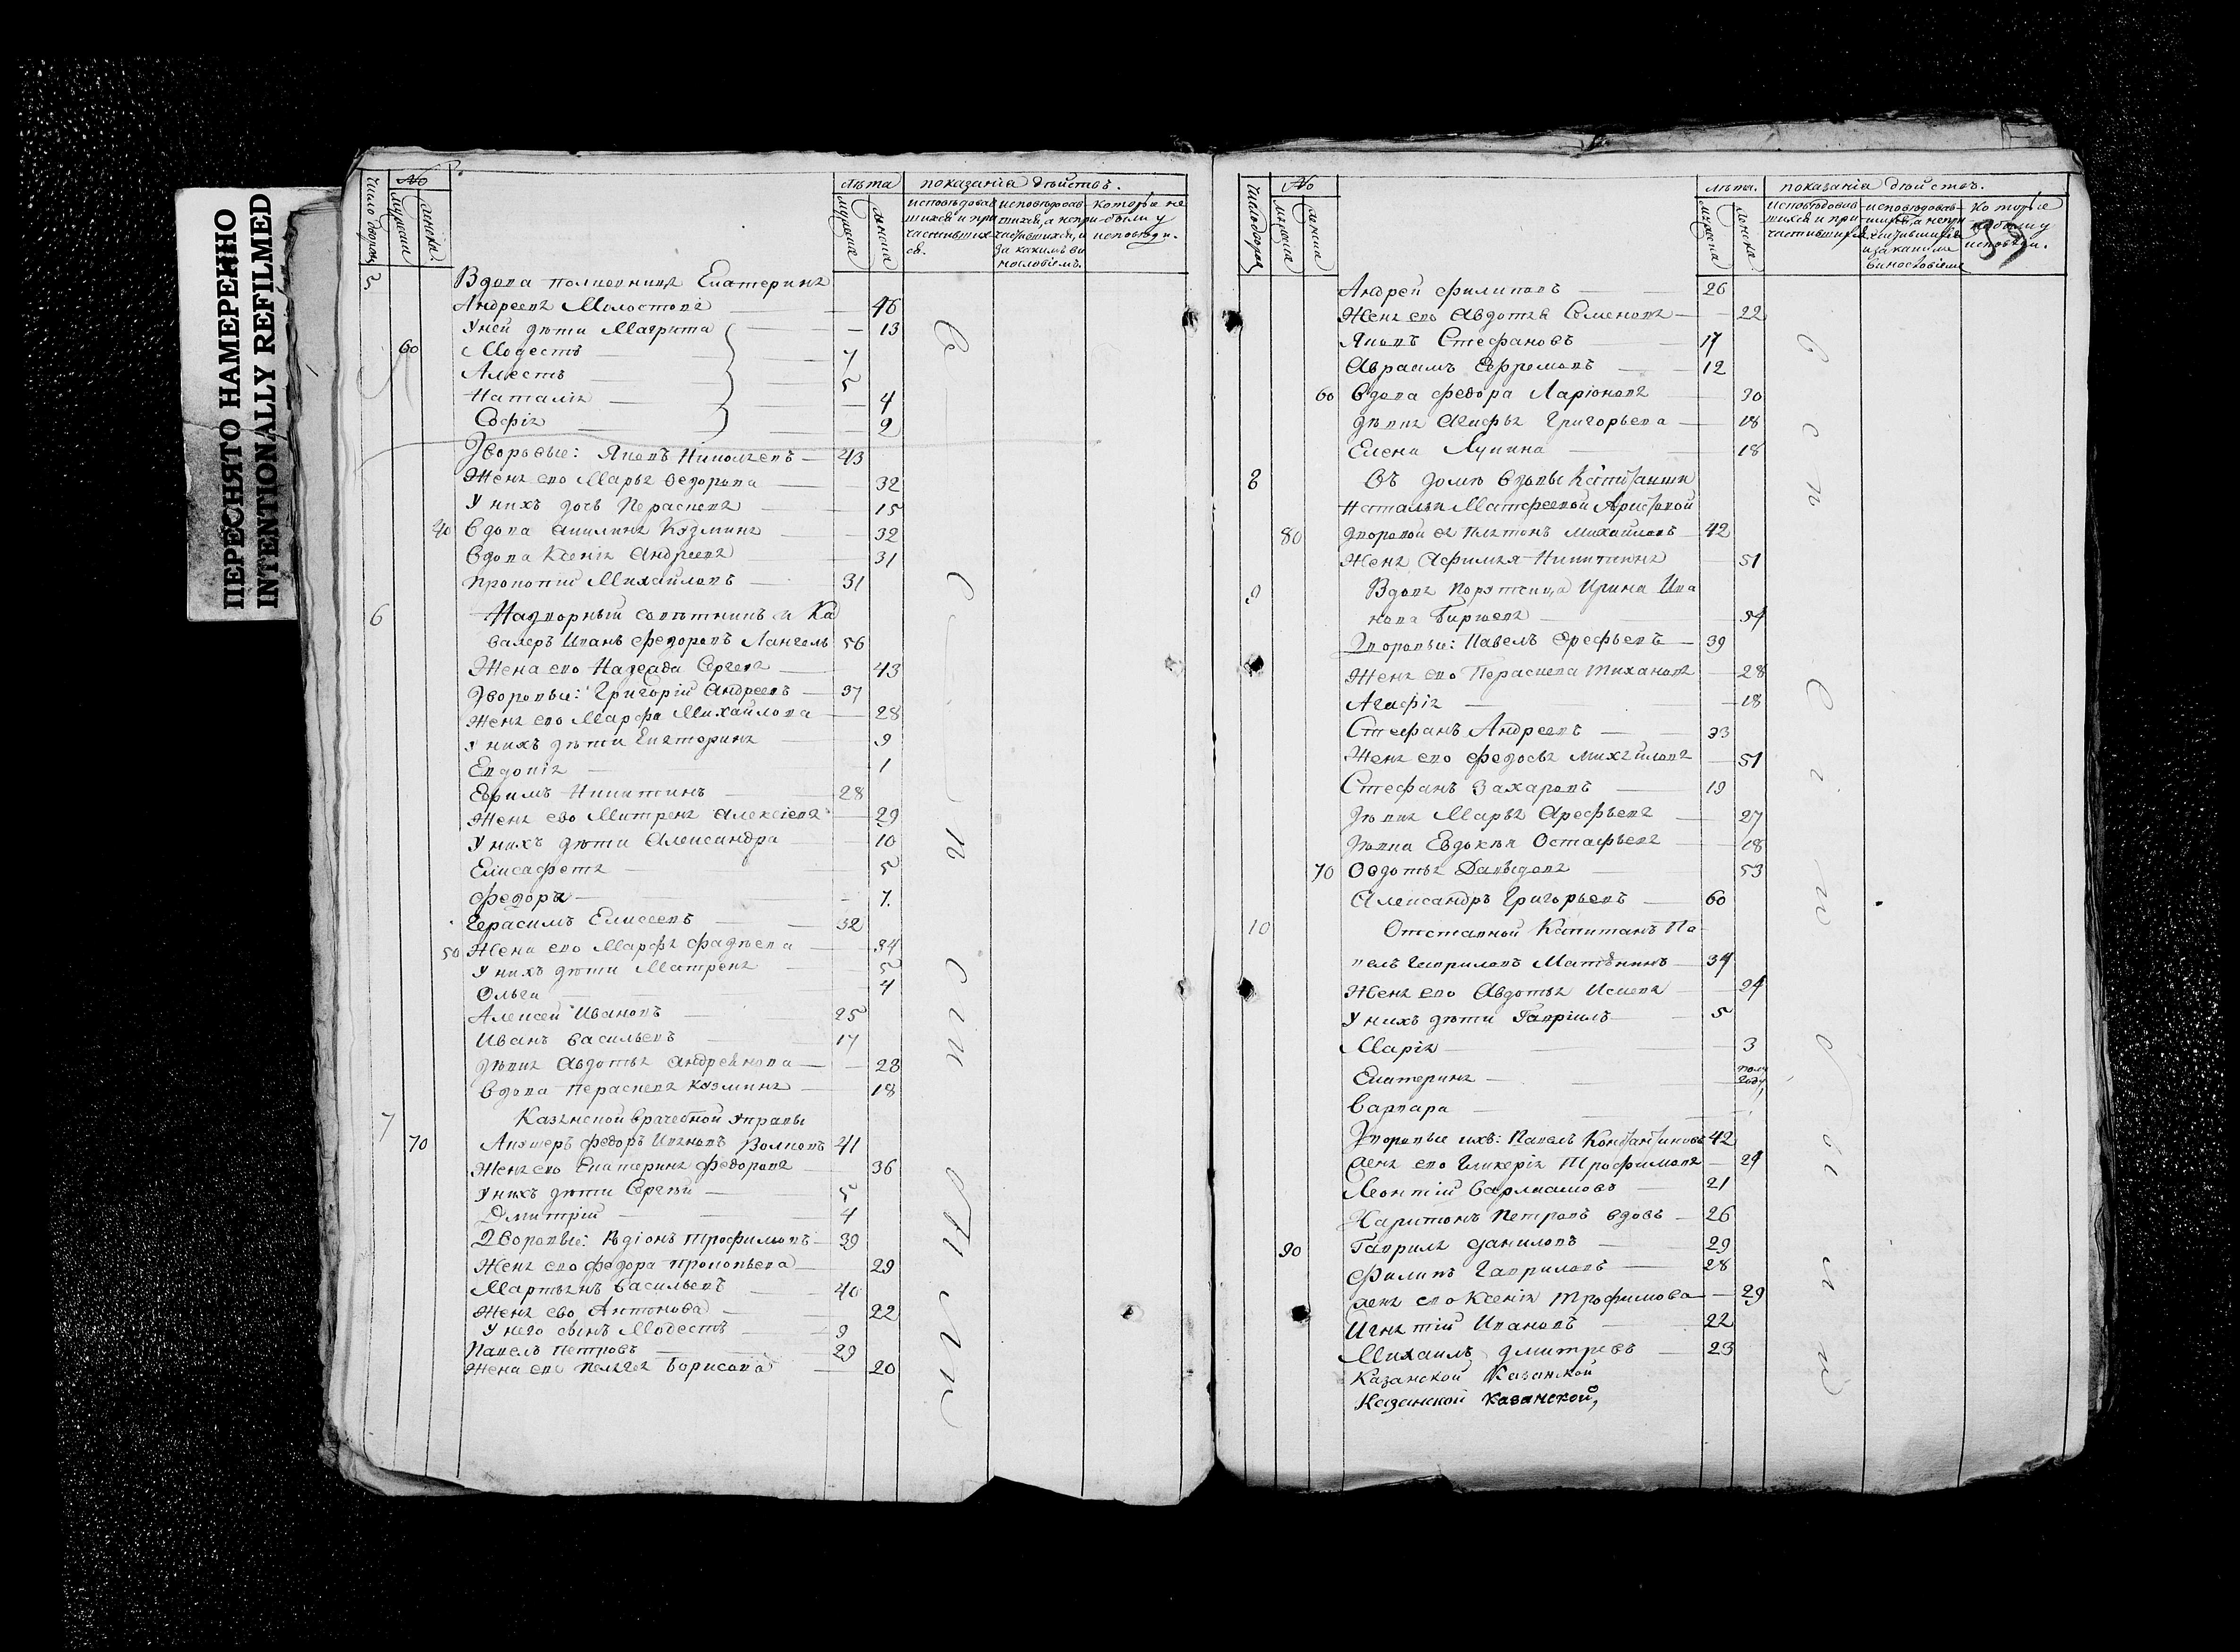 ПЕРЕСНЯТО НАМЕРЕННО
INTENTIONALLY REFILMED
Число дворовъ
№
мужеска
женска
лѣта
мужеска
женска
показанія дѣйствъ.
исповѣдовав
шихся и при
частивших
ся.
исповѣдовав
шихся, а непри
частившихся, и
за какимъ ви
нословіемъ.
которые не
были у
исповѣди.
5
Вдова полковница Екатерина
Андреева Милостова 46
У ней дѣти Маргрита 13
60 Модестъ 7
Алестъ 5
Наталія 4
Софія 2
Дворовые: Яковъ Николаевъ 43
Жена его Марья Федорова 32
У нихъ дочь Парасковья 15
40 Вдова Акилина Козмина 32
Вдова Ксенія Андреева 31
Прокопий Михайловъ 31
6 Надворный советникъ и Ка
валеръ Иванъ Федоровъ Лангель 56
Жена его Надежда Сергеева 43
Дворовые: Григорій Андреевъ 37
Жена его Марфа Михайлова 28
У нихъ дѣти Екатерина 9
Евдокія 1
Ефимъ Никитинъ 28
Жена ево Митрена Алексіева 29
У нихъ дѣти Александра 10
Елисафета 5
Федора 7
Герасимъ Елисеевъ 32
50 Жена его Марфа Фадѣева 34
У нихъ дѣти Матрена 5
Ольга 4
Алексей Ивановъ 25
Иванъ Васильевъ 17
Дѣвка Авдотья Андреянова 28
Вдова Параскева Козмина 18
7 Казанской врачебной управы
70 Акушеръ Федоръ Ивановъ Волковъ 41
Жена его Екатерина Федорова 36
У нихъ дѣти Сергѣй 5
Дмитрій 4
Дворовые: Родіонъ Трофимовъ 39
Жена его Федора Прокопьева 29
Мартынъ Васильевъ 40
Жена ево Антонова 22
У него сынъ Модестъ 9
Павелъ Петровъ 29
Жена его Пелагея Борисова 20
Число дворовъ
№
мужеска
женска
лѣта.
мужеска
женска
показанія дѣйствъ.
исповѣдовав
шихся и при
частившихся
исповѣдовав
шихся, а непри
частившихся
и за какимъ
винословіемъ
которые
не были у
исповѣди.
39
Андрей Филиповъ 26
Жена его Авдотья Семенова 22
Яковъ Стефановъ 17
Авраамъ Ефремовъ 12
60 Вдова Федора Ларіонова 30
Дѣвка Агафья Григорьева 18
Елена Лукина 18
8 Въ домѣ вдовы Капитанши
Натальи Матфеевой Аристовой
80 дворовой ея Платонъ Михайловъ 42
Жена Афимья Никитина 51
9 Вдова Порутчица Ирина Ива
нова Биргиева 54
Дворовые: Павелъ Арефьевъ 39
Жена его Параскева Тиханова 28
Агафія 18
Стефанъ Андреевъ 33
Жена его Федосья Михайлова 51
Стефанъ Захаровъ 19
Дѣвка Марья Арефьева 27
Дѣвка Евдокѣя Остафьева 18
70 Овдотья Давыдова 53
Александръ Григорьевъ 60
10 Отставной Капитанъ Па
велъ Гавриловъ Матюнинъ 34
Жена его Авдотья Исаева 24
У нихъ дѣти Гавріилъ 5
Марія 3
Екатерина полу году
Варвара
Дворовые ихъ: Павелъ Константиновъ 42
жена его Гликерія Трофимова 24
Леонтій Варлаамовъ 21
Харитонъ Петровъ вдовъ 26
90 Гаврила Даниловъ 29
Филипъ Гавриловъ 28
жена его Ксенія Трофимова 29
Игнатій Ивановъ 22
Михаилъ Дмитревъ 23
Казанской Казанской
Казанской Казанской,